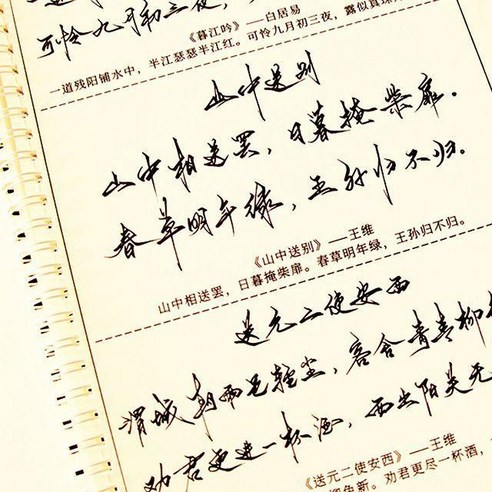 可怜九月初三夜，
《暮江吟》——白居易
一道残阳铺水中，半江瑟瑟半江红。可怜九月初三夜，露似真珠
山中送别
山中相送罢，日暮掩柴扉.
春草明年绿，王孙归不归.
《山中送别》——王维
山中相送罢，日暮掩柴扉。春草明年绿，王孙归不归。
送元二使安西
渭城朝雨浥轻尘，客舍青青柳
劝君更进一杯酒，西出阳关无
《送元二使安西》——王维
色新。劝君更尽一杯酒，